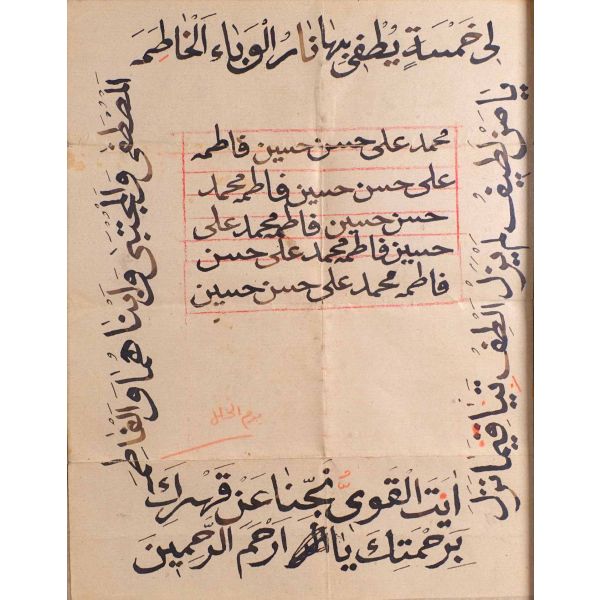 لِي خَمْسَةٌ يُطْفَى بِهَا نَارُ الْوَبَاءِ الْحَاطِمَه
الْمُصْطَفَى وَالْمُجْتَبَى وَابْنَاهُمَا وَالْفَاطِمَه
محمد على حسن حسين فاطمه
على حسن حسين فاطمه محمد
حسن حسين فاطمه محمد على
حسين فاطمه محمد على حسن
فاطمه محمد على حسن حسين
يَا مَنْ لَطِيفٌ لَمْ يَزَلْ الْطُفْ بِنَا فِيمَا نَزَلَ
اَنْتَ الْقَوِىُّ نَجِّنَا عَنْ قَهْرِكَ
بِرَحْمَتِكَ يَا اَرْحَمَ الرَّحِمِينَ